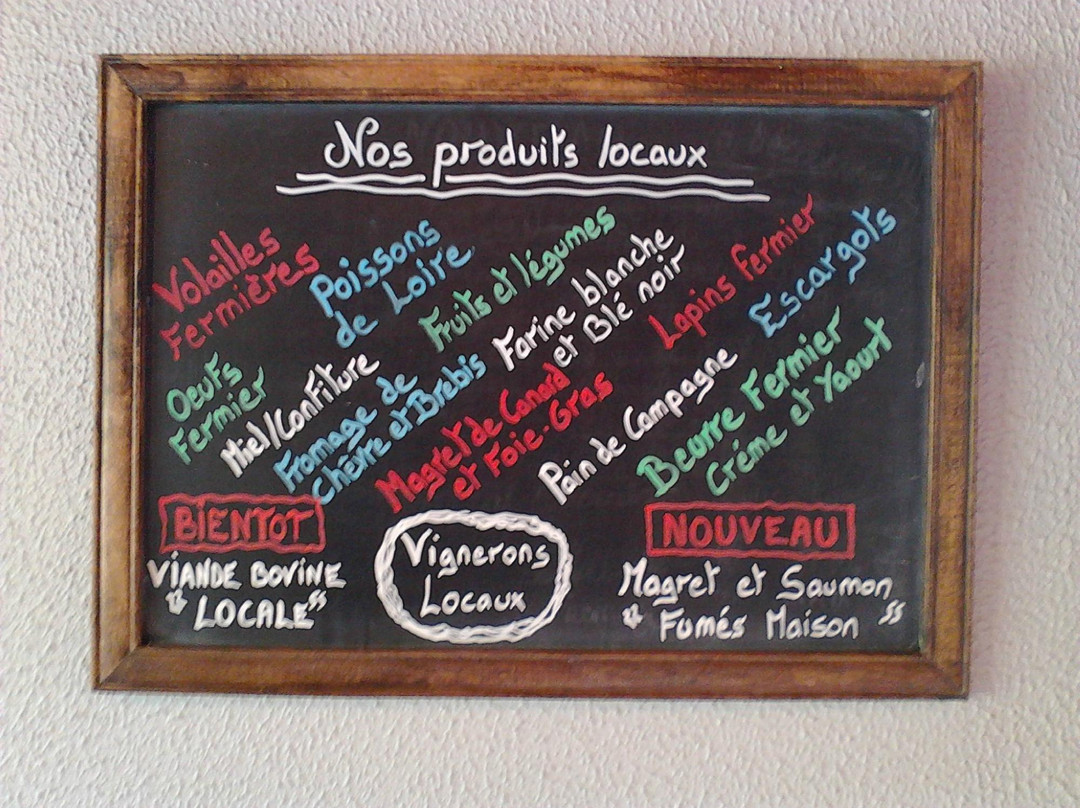 Nos produits locaux
Volailles
Fermières
Poissons
de Loire
Fruits et légumes
Farine blanche
et Blé noir
Lapins fermier
Escargots
Oeufs
Fermier
Miel/Confiture
Fromage de
Chèvre et Brebis
Magret de Canard
et Foie-Gras
Pain de Campagne
Beurre Fermier
Créme et Yaourt
BIENTOT
VIANDE BOVINE
"LOCALE"
Vignerons
Locaux
NOUVEAU
Magret et Saumon
"Fumés Maison"